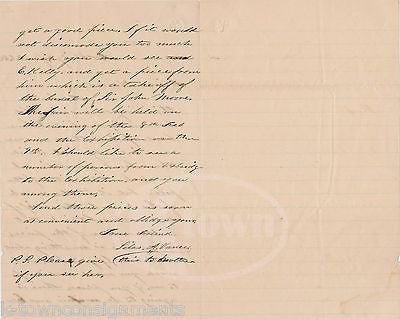 get a good piece. If it would
not discomode you too much
I wish you would see
E. Kelly, and get a piece from
him which is a take off of
the burial of Sir John Moore.
The fair will be held on
the evening of the 8th Feb
and the Exhibition on the
9th. I should like to see a
number of persons from
to the Exhibition, and you
among them.
Send those pieces as soon
as convenient and oblige your
True friend
A. Vance
P.S. Please give this to
if you see her.